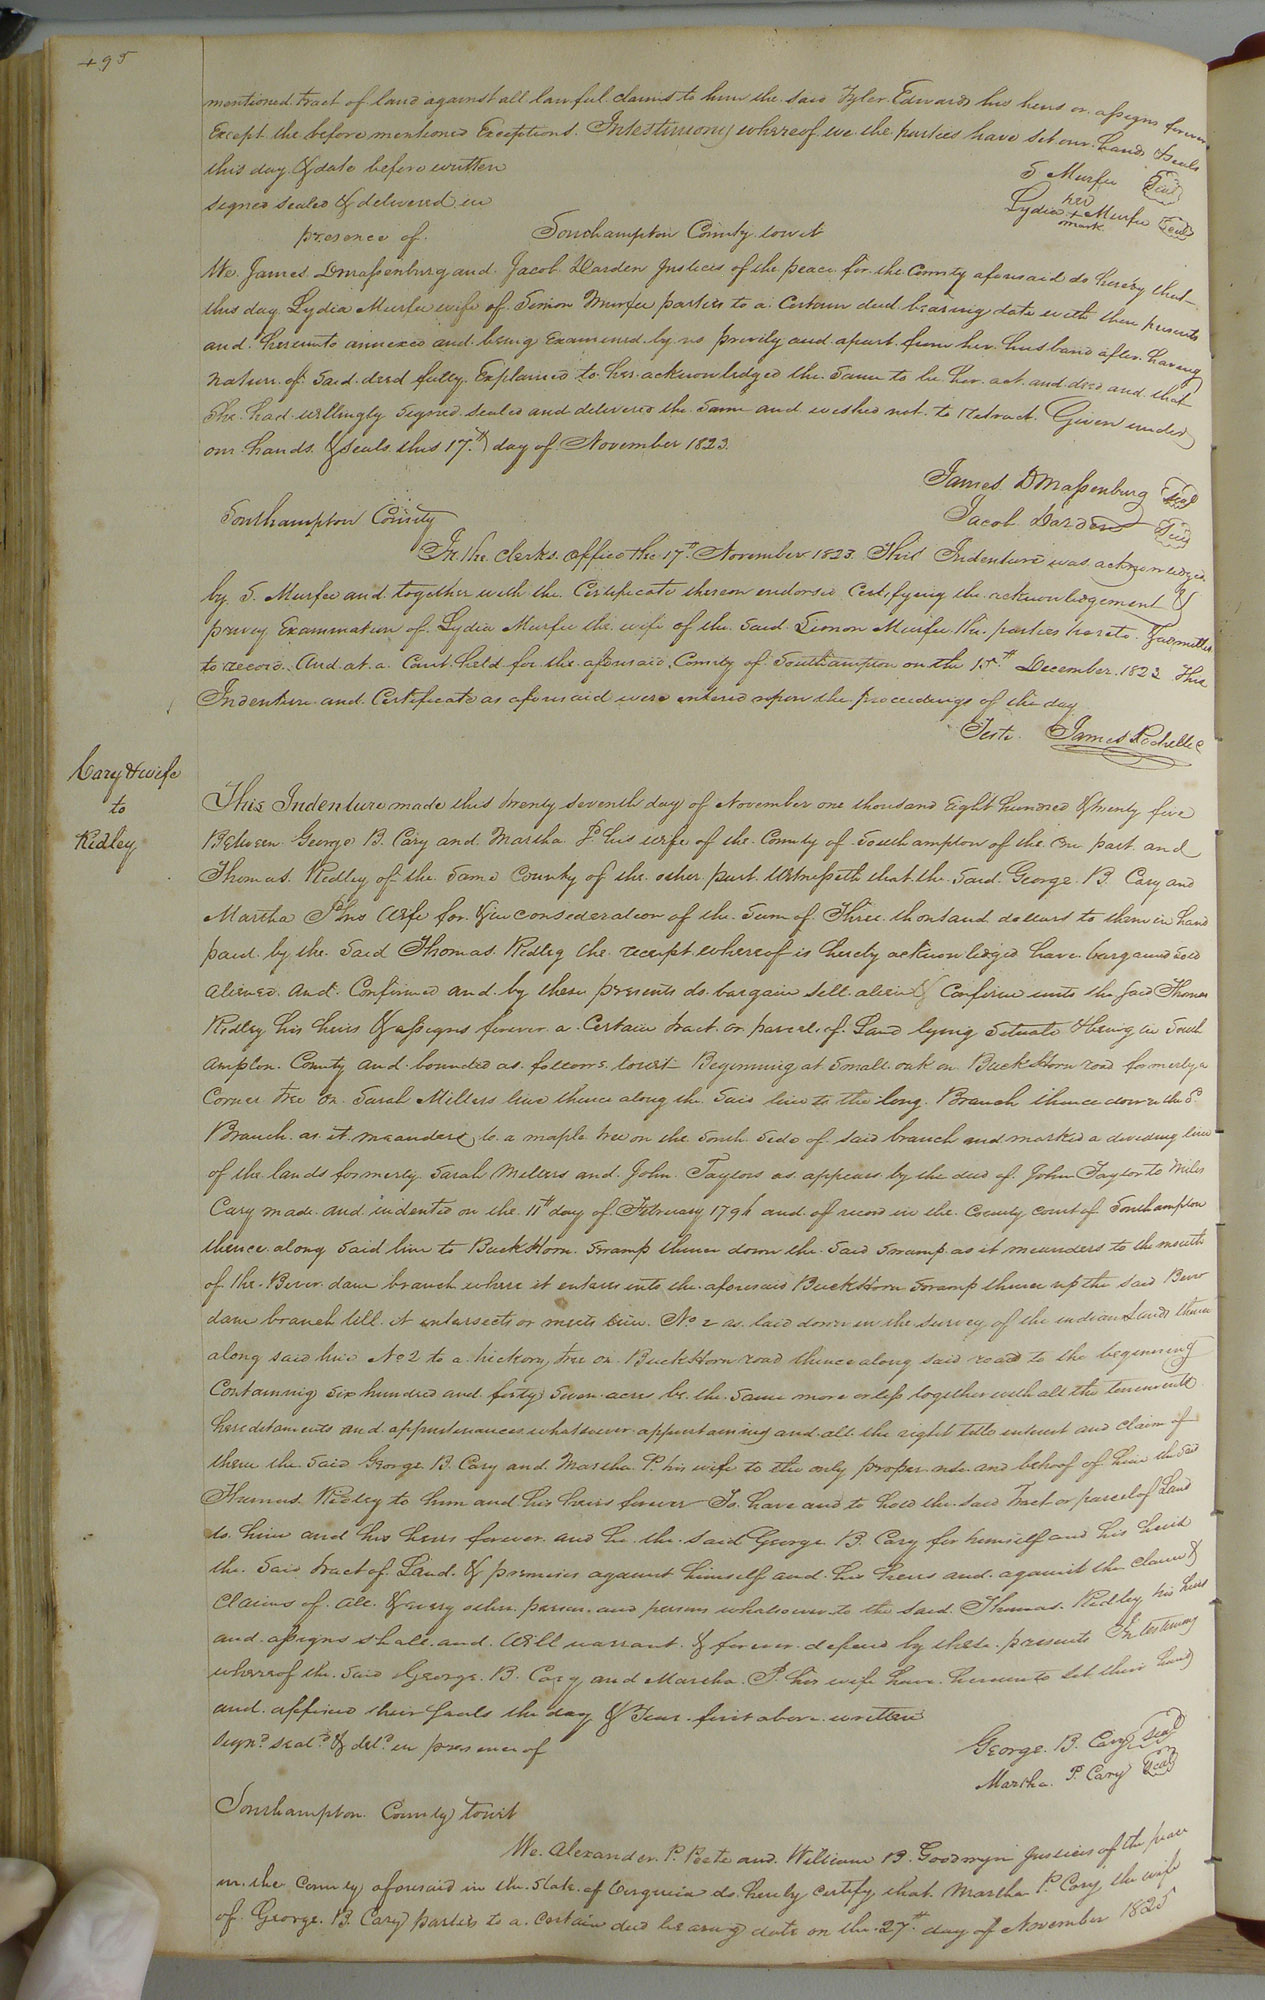 495
mentioned tract of land against all lawful claims to him the said Tyler Edwards his heirs or assigns forever
Except the before mentioned Exceptions. In testimony whereof we the parties have set our hands & seals
this day & date before written
S Murfee Seal
signed sealed & delivered in
her
Lydia + Murfee Seal
mark
presence of
Southampton County towit
We James D Massenburg and Jacob Darden Justices of the peace for the County aforesaid do hereby that
this day Lydia Murfee wife of Simon Murfee parties to a certain deed bearing date with these presents
and hereunto annexed and being Examined by us privily and apart from her husband after having
nature of said deed fully Explained to her acknowledged the same to be her act and deed and that
she had willingly signed sealed and delivered the same and wished not to retract Given under
our hands & seals this 17th day of November 1823
James D Massenburg Seal
Southampton County
Jacob Darden Seal
In the Clerks office the 17th November 1823 This Indenture was acknowledged
by S. Murfee and together with the Certificate thereon endorsed Certifying the acknowledgement &
privy Examination of Lydia Murfee the wife of the said Simon Murfee the parties hereto & admitted
to record. And at a Court held for the aforesaid County of Southampton on the 15th December 1823 This
Indenture and Certificate as aforesaid were entered upon the proceedings of the day
Teste James Rochelle C
Cary & wife
to
Ridley
This Indenture made this twenty seventh day of November one thousand Eight hundred & twenty five
Between George B. Cary and Martha P. his wife of the County of Southampton of the one part and
Thomas Ridley of the same County of the other part Witnesseth that the said George B. Cary and
Martha P his Wife for & in consideration of the sum of Three thousand dollars to them in hand
paid by the said Thomas Ridley the receipt whereof is hereby acknowledged have bargained sold
aliened and Confirmed and by these presents do bargain sell alien & Confirm unto the said Thomas
Ridley his heirs & assigns forever a Certain tract or parcel of Land lying situate & being in South
ampton County and bounded as follows towit Beginning at small oak on BuckHorn road formerly a
Corner tree on Sarah Millers line thence along the said line to the long Branch thence down the sd
Branch as it meanders to a maple tree on the south side of said branch and marked a dividing line
of the lands formerly Sarah Millers and John Taylors as appears by the deed of John Taylor to Miles
Cary made and indented on the 11th day of February 1796 and of record in the County court of Southampton
thence along said line to BuckHorn swamp thence down the said swamp as it meanders to the mouth
of the Bever dam branch where it enters into the aforesaid BuckHorn swamp thence up the said Bever
dam branch till it intersects or meets line No 2 as laid down in the survey of the indian Lands thence
along said line No 2 to a hickory tree on BuckHorn road thence along said road to the beginning
Containing six hundred and forty seven acres be the same more or less together with all the tenements
hereditaments and appurtenances whatsoever appertaining and all the right title interest and claim of
them the said George B. Cary and Martha P. his wife to the only proper use and behoof of him the said
Thomas Ridley to him and his heirs forever To have and to hold the said Tract or parcel of Land
to him and his heirs forever and he the said George B. Cary for himself and his heirs
the said tract of Land & premises against himself and his heirs and against the claim &
Claims of all & every other person and persons whatsoever to the said Thomas Ridley his heirs
and assigns shall and Will warrant & forever defend by these presents In testimony
whereof the said George B. Cary and Martha P his wife have hereunto set their hand
and affixed their seals the day & Year first above written
George B. Cary Seal
Signd seald & deld in presence of
Martha P. Cary Seal
Southampton County towit
We Alexander P. Peete and William B. Goodwyn Justices of the peace
in the County aforesaid in the state of Virginia do hereby certify that Martha P. Cary the wife
of George B. Cary parties to a certain deed bearing date on the 27th day of November 1825